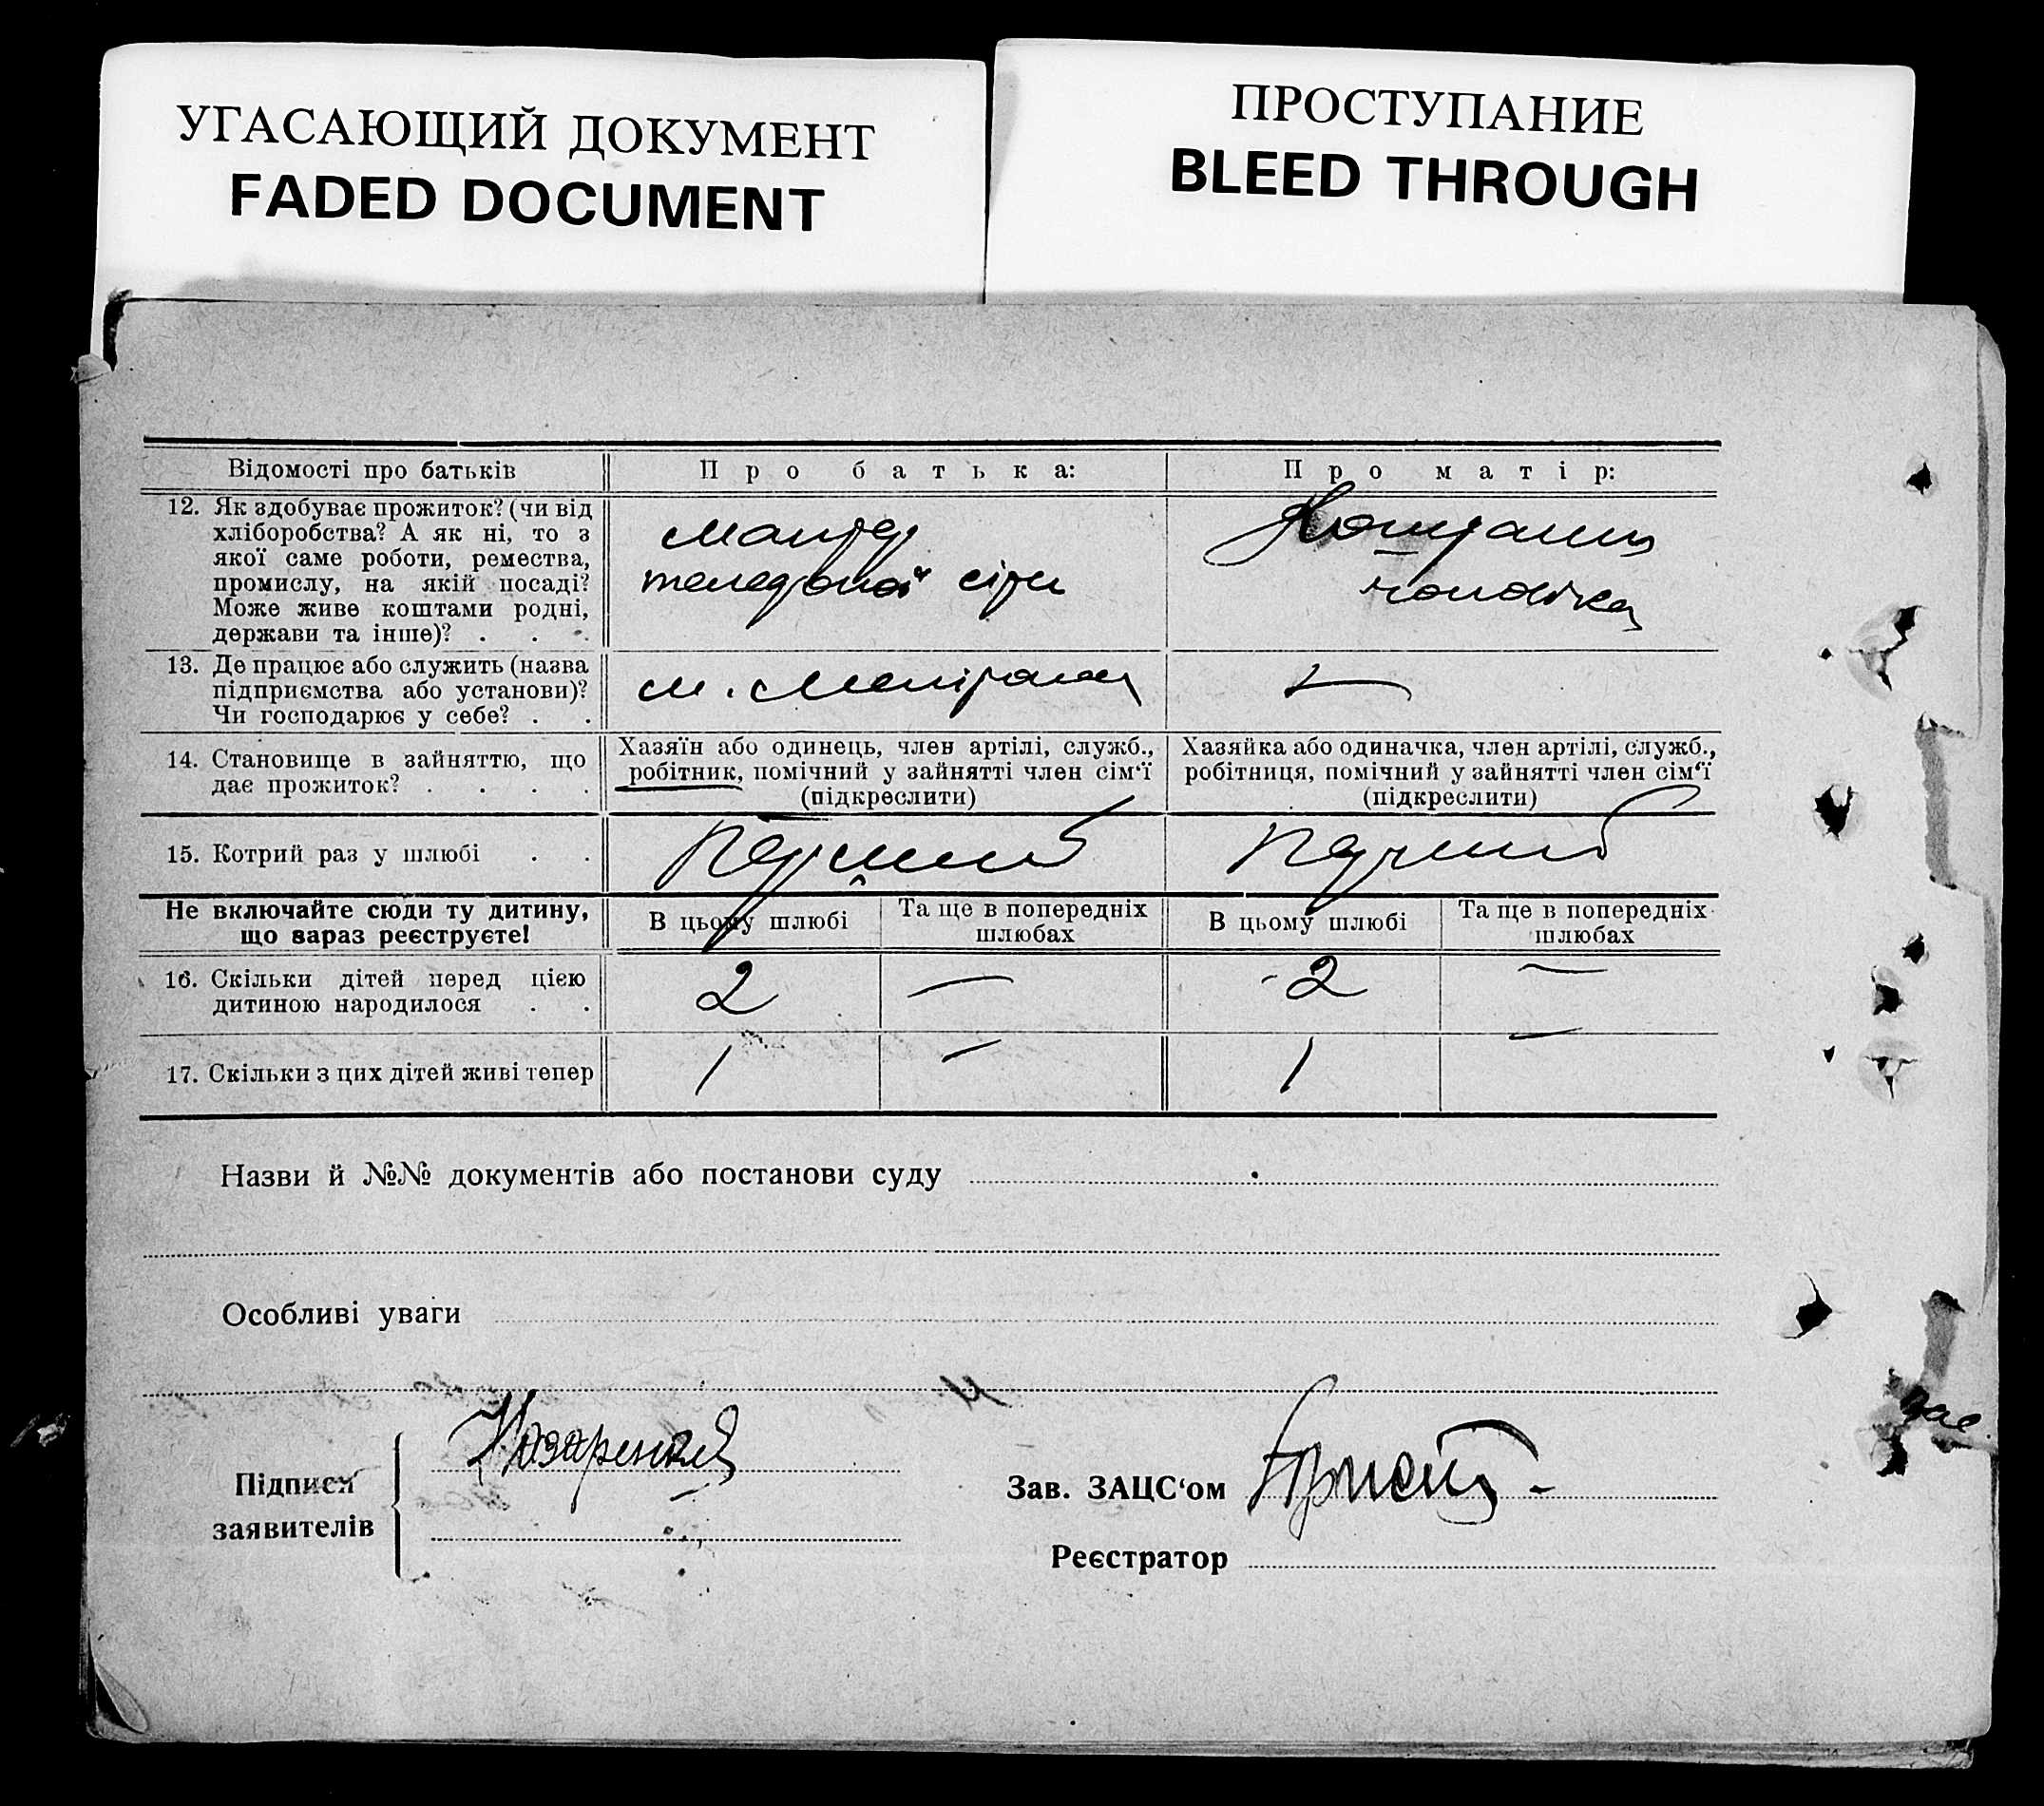 УГАСАЮЩИЙ ДОКУМЕНТ
FADED DOCUMENT
ПРОСТУПАНИЕ
BLEED THROUGH
Відомості про батьків
Про батька:
Про матір:
12. Як здобуває прожиток? (чи від
хліборобства? А як ні, то з
якої саме роботи, ремества,
промислу, на якій посаді?
Може живе коштами родні,
держави та інше)? . . .
телефоної сіти
Коштами
чоловіка
13. Де працює або служить (назва
підприємства або установи)?
Чи господарює у себе? . .
м.
—
14. Становище в зайняттю, що
дає прожиток? . . . .
Хазяїн або одинець, член артілі, служб.,
робітник, помічний у зайнятті член сім‘ї
(підкреслити)
Хазяйка або одиначка, член артілі, служб.,
робітниця, помічний у зайнятті член сім‘ї
(підкреслити)
15. Котрий раз у шлюбі . .
Перший
Перший
Не включайте сюди ту дитину,
що вараз реєструєте!
В цьому шлюбі
Та ще в попередніх
шлюбах
В цьому шлюбі
Та ще в попередніх
шлюбах
16. Скільки дітей перед цією
дитиною народилося . .
2
—
2
—
17. Скільки з цих дітей живі тепер
1
—
1
—
Назви й №№ документів або постанови суду
Особливі уваги
Підписи
заявителів
Зав. ЗАЦС‘ом
Реєстратор